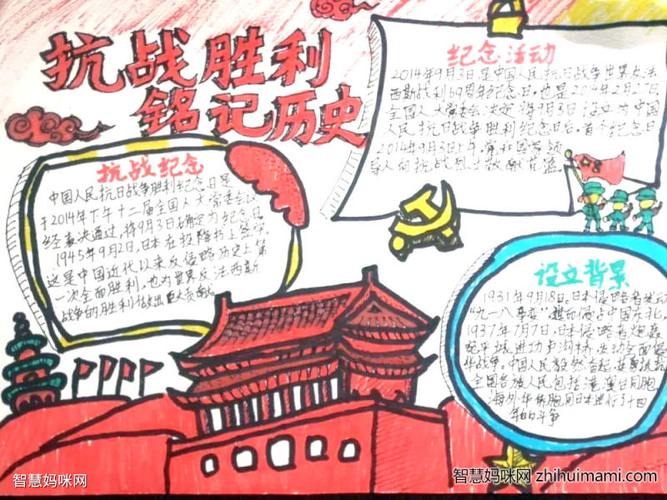 抗战胜利
铭记历史
纪念活动
2014年9月3日是中国人民抗日战争世界反法
西斯战利69周年纪念日,也是2014年2月27日
全国人大常委会决定将9月3日设立为中国
人民抗日战争胜利纪念日后,首个纪念日
2014年9月3日上午,
导人向抗战烈士敬献花篮
抗战纪念
中国人民抗日战争胜利纪念日是
于2014年下午十二届全国人大常委会
经表决通过,将9月3日确定为纪念日
1945年9月2日,日本在投降书上签字
这是中国近代以来反侵略历史上第
一次全面胜利,也为世界反法西斯
战争的胜利做出巨大贡献
设立背景
1931年9月18日,日本侵略者发动
"九一八事变",中国东北。
1937年7月7日,日本侵略者炮轰
宛平城进攻卢沟桥,发动全面侵
华战争。中国人民毅然奋起,
全国各族人民包括港澳台同胞
海外华侨同胞同日本进行了十四
年的斗争
智慧妈咪网
智慧妈咪网 zhihuimami.com